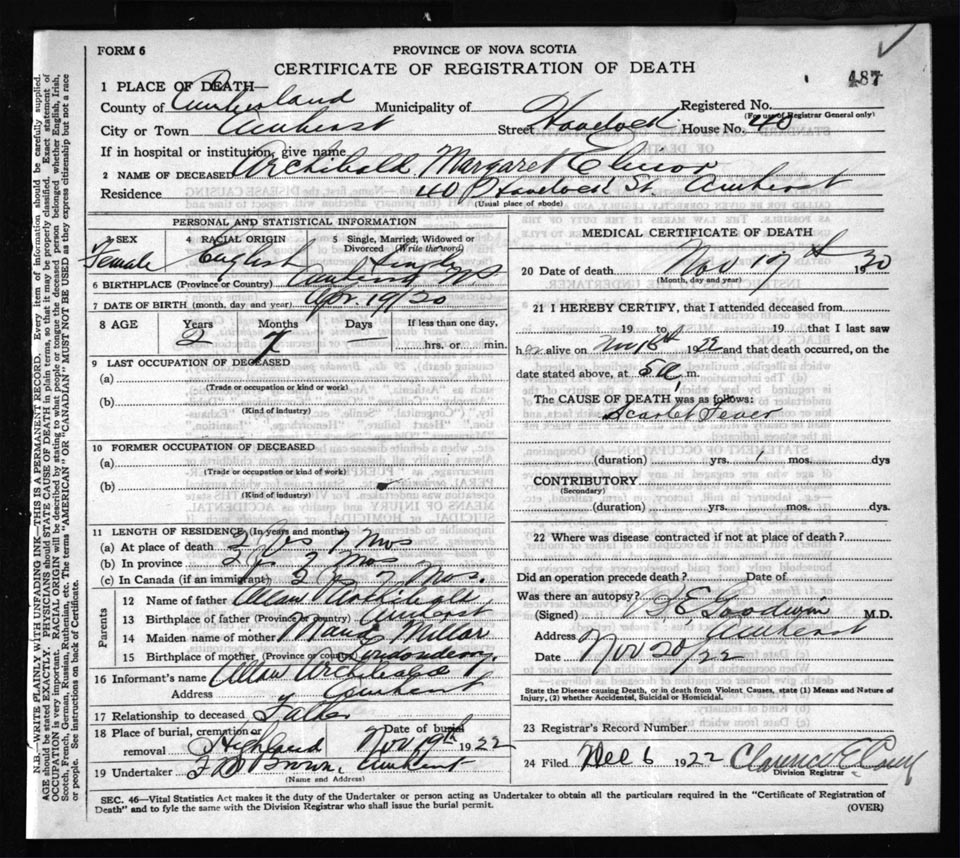 FORM 6
PROVINCE OF NOVA SCOTIA
CERTIFICATE OF REGISTRATION OF DEATH
487
1 PLACE OF DEATH—
County of Cumberland Municipality of Registered No.
(For use of Registrar General only)
City or Town Amherst Street Havelock House No. 40
If in hospital or institution, give name
2 NAME OF DECEASED Archibald Margaret Elinor
Residence 40 Havelock St. Amherst
(Usual place of abode)
PERSONAL AND STATISTICAL INFORMATION
3 SEX 4 RACIAL ORIGIN 5 Single, Married, Widowed or Divorced (Write the word)
Female English Single
6 BIRTHPLACE (Province or Country) Amherst NS
7 DATE OF BIRTH (month, day and year) Apr. 19/20
8 AGE Years Months Days If less than one day,
2 7 hrs. or min.
9 LAST OCCUPATION OF DECEASED
(a)
(Trade or occupation or kind of work)
(b)
(Kind of industry)
10 FORMER OCCUPATION OF DECEASED
(a)
(Trade or occupation or kind of work)
(b)
(Kind of industry)
11 LENGTH OF RESIDENCE (In years and months)
(a) At place of death 2 yrs 7 mos
(b) In province 2 7 mos
(c) In Canada (if an immigrant) 2 7 Mos.
Parents
12 Name of father Allan Archibald
13 Birthplace of father (Province or country) Amherst
14 Maiden name of mother Maude Millar
15 Birthplace of mother (Province or country) Londonderry
16 Informant's name Allan Archibald
Address Amherst
17 Relationship to deceased Father
18 Place of burial, cremation or removal Highland Date of burial Nov 19th 1922
19 Undertaker Brown, Amherst
(Name and Address)
MEDICAL CERTIFICATE OF DEATH
20 Date of death Nov 19th 1920
(Month, day and year)
21 I HEREBY CERTIFY, that I attended deceased from
19 to 19 that I last saw
her alive on Nov 18th 1922 and that death occurred, on the
date stated above, at 5 a, m.
The CAUSE OF DEATH was as follows:
Scarlet Fever
(duration) yrs. mos. dys
CONTRIBUTORY
(Secondary)
(duration) yrs. mos. dys.
22 Where was disease contracted if not at place of death?
Did an operation precede death? Date of
Was there an autopsy?
(Signed) Goodwin M.D.
Address Amherst
Date Nov 20/22
State the Disease causing Death, or in death from Violent Causes, state (1) Means and Nature of
Injury, (2) whether Accidental, Suicidal or Homicidal.
23 Registrar's Record Number
24 Filed Dec 6 1922 Clarence E.
Division Registrar
SEC. 46—Vital Statistics Act makes it the duty of the Undertaker or person acting as Undertaker to obtain all the particulars required in the "Certificate of Registration of
Death" and to fyle the same with the Division Registrar who shall issue the burial permit.
(OVER)
N.B.—WRITE PLAINLY WITH UNFADING INK—THIS IS A PERMANENT RECORD. Every item of information should be carefully supplied.
AGE should be stated EXACTLY. PHYSICIANS should STATE CAUSE OF DEATH in plain terms, so that it may be properly classified. Exact statement of
OCCUPATION is very important. RACIAL ORIGIN will be described by stating to what people or tongue the deceased person belonged whether English, Irish,
Scotch, French, German, Russian, Ruthenian, etc. The terms "AMERICAN" OR "CANADIAN" MUST NOT BE USED as they express citizenship but not a race
or people. See instructions on back of Certificate.